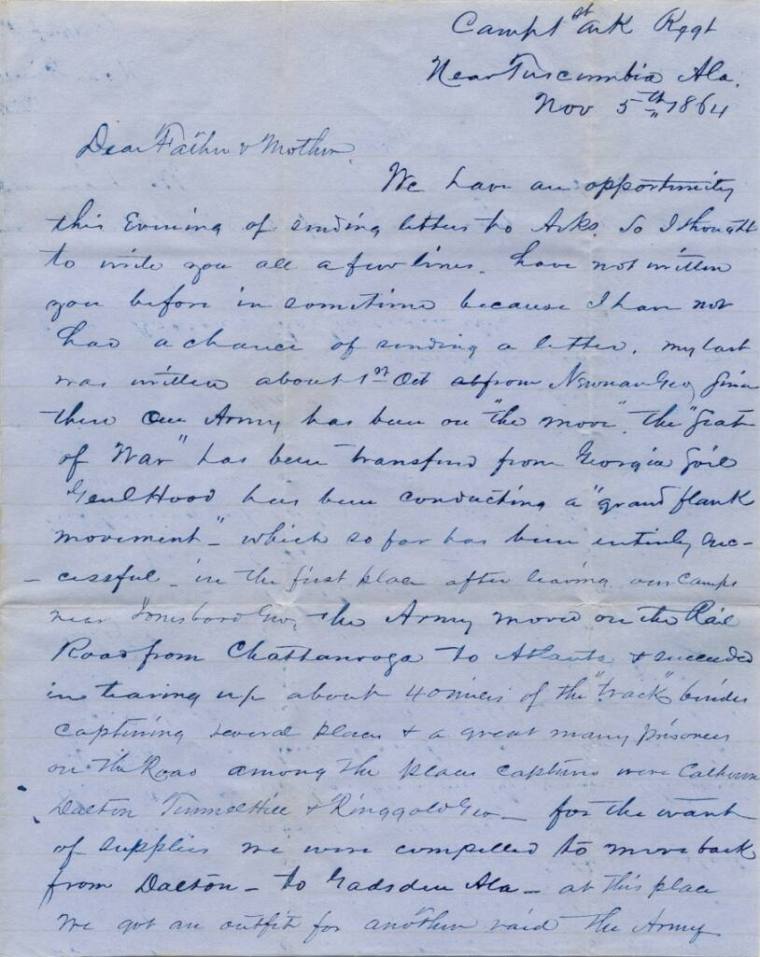 Camp 1st Ark Regt
Near Tuscumbia Ala.
Nov 5th 1864
Dear Father & Mother
We have an opportunity
this Evening of sending letters to Arks. So I thought
to write you all a few lines. have not written
you before in sometime because I have not
had a chance of sending a letter. my last
was written about 1st Oct from Newnan Geo, Since
then our Army has been on "the move". the "Seat
of War" has been transferd from Georgia Soil
Genl Hood has been conducting a "grand flank
movement" - which so far has been entirely suc-
- cessful - in the first place after leaving our Camps
near Jonesboro Geo, the Army moved on the Rail
Road from Chattanooga to Atlanta & succeeded
in tearing up about 40 miles of the "track" besides
capturing several places & a great many prisoners
on the Road among the places captured were Calhoun
Dalton Tunnel Hill & Ringgold Geo - for the want
of supplies we were compelled to move back
from Dalton - to Gadsden Ala - at this place
we got an outfit for another raid the Army